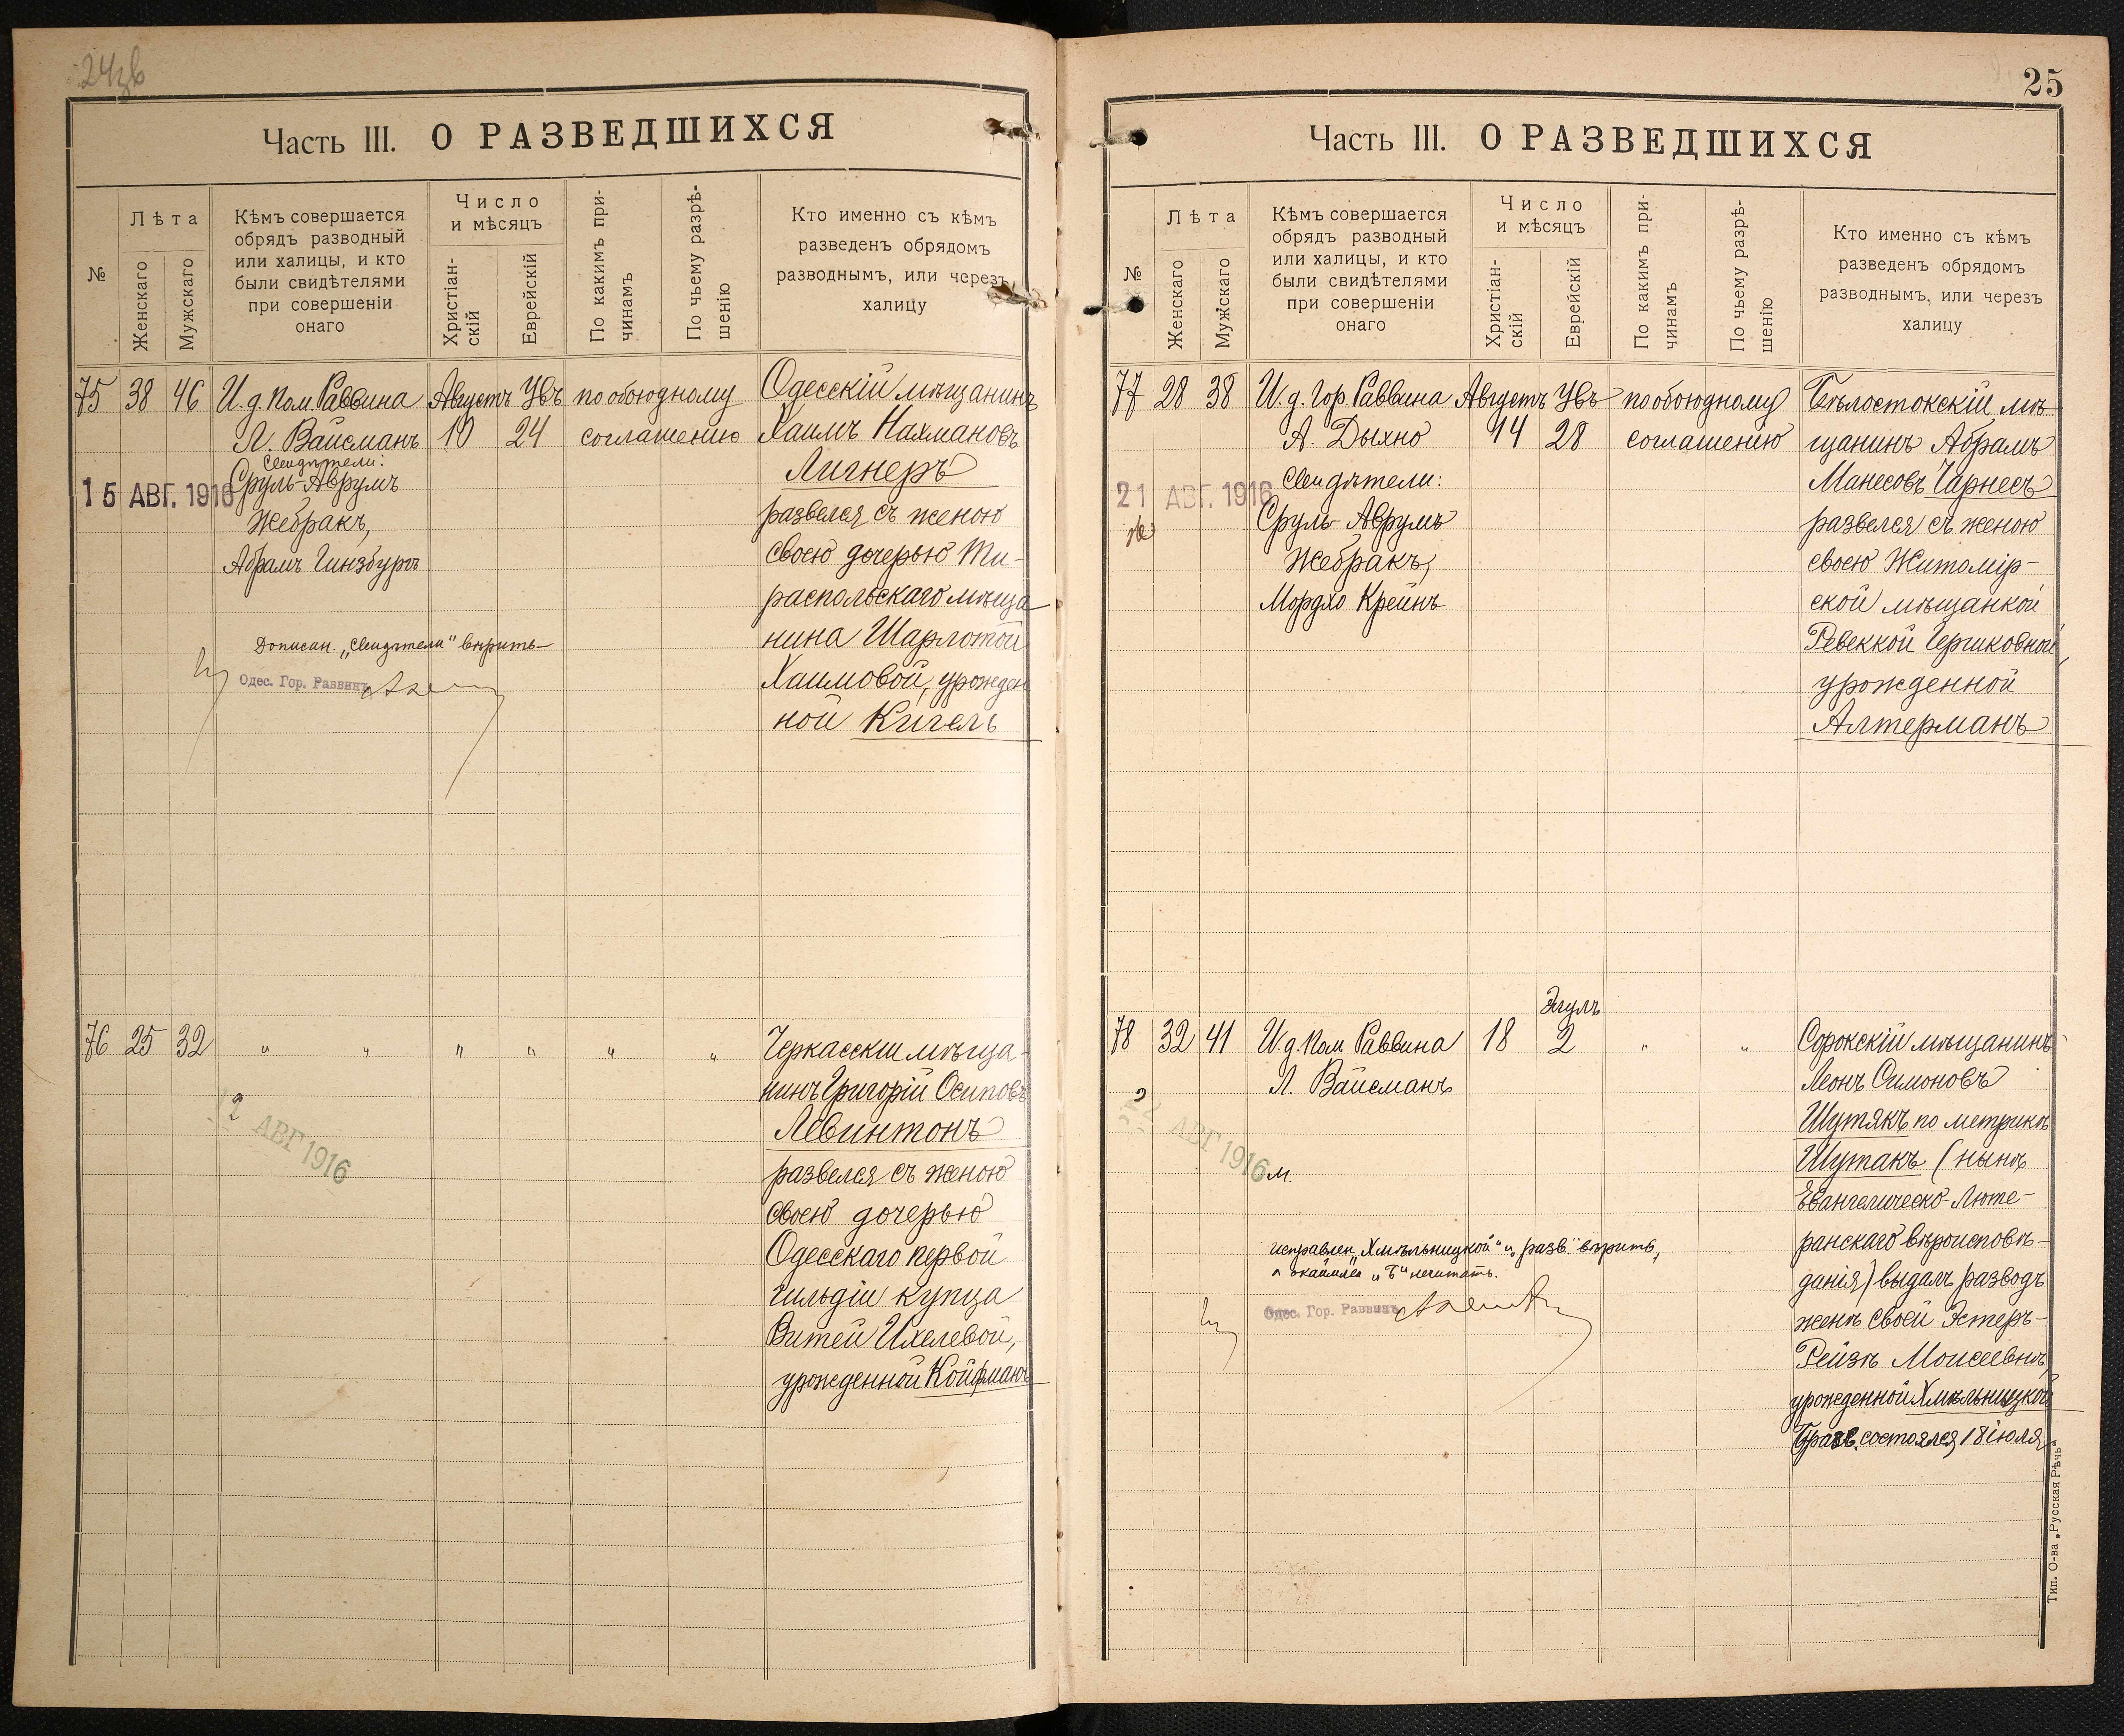 Часть III. О РАЗВЕДШИХСЯ
№
Лѣта
Женскаго
Мужскаго
Кѣмъ совершается
обрядъ разводный
или халицы, и кто
были свидѣтелями
при совершеніи
онаго
Число
и мѣсяцъ
Христіан-
скій
Еврейскій
По какимъ при-
чинамъ
По чьему разрѣ-
шенію
Кто именно съ кѣмъ
разведенъ обрядомъ
разводнымъ, или черезъ
халицу
75 38 46 И. д. Пом. Раввина Августъ Увъ по обоюдному Одесскій мѣщанинъ
Л. Вайсманъ 10 24 соглашенію Хаимъ Нахмановъ
Свидѣтели:
Лигнеръ
15 АВГ. 1916 Сруль-Аврумъ
Жебракъ,
развелся съ женою
Абрамъ Гинзбургъ
своею дочерью Ти-
распольскаго мѣща
нина Шарлотой
Дописан. „Свидѣтели" вѣрить
Хаимовой, урожден
Одес. Гор. Раввинъ
ной Кигель
76 25 32 " " " " " " Черкасскій мѣща-
нинъ Григорій Осиповъ
2 АВГ 1916
Левинтонъ
развелся съ женою
своею дочерью
Одесскаго первой
гильдіи купца
Витей Ихелевой,
урожденной Койфманъ
25
Часть III. О РАЗВЕДШИХСЯ
№
Лѣта
Женскаго
Мужскаго
Кѣмъ совершается
обрядъ разводный
или халицы, и кто
были свидѣтелями
при совершеніи
онаго
Число
и мѣсяцъ
Христіан-
скій
Еврейскій
По какимъ при-
чинамъ
По чьему разрѣ-
шенію
Кто именно съ кѣмъ
разведенъ обрядомъ
разводнымъ, или черезъ
халицу
77 28 38 И. д. Гор. Раввина Августъ Увъ по обоюдному Бѣлостокскій мѣ-
А. Дыхно 14 28 соглашенію щанинъ Абрамъ
21 АВГ. 1916 Свидѣтели:
Манесовъ Чарнесъ
Сруль-Аврумъ
развелся съ женою
Жебракъ,
своею Житомір-
Мордхо Крейнъ
ской мѣщанкой
Ревеккой Гершковной,
урожденной
Алтерманъ
Элулъ
78 32 41 И. д. Пом. Раввина 18 2 " " Сорокскій мѣщанинъ
Л. Вайсманъ
Леонъ Симоновъ
22 АВГ 1916
Шутякъ по метрикѣ
м.
Шутакъ (нынѣ
Евангелическо-Люте-
ранскаго вѣроисповѣ-
исправлен. „Хмѣльницкой" и „разв." вѣрить,
данія) выдалъ разводъ
Одес. Гор. Раввинъ
женѣ своей Эстеръ-
Рейзѣ Моисеевнѣ,
урожденной Хмѣльницкой
разв. состоялся 18 іюля
Тип. О-ва „Русская Рѣчь"